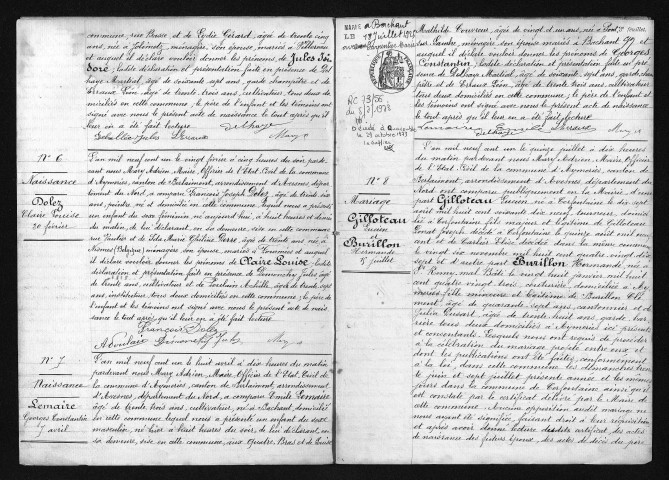 commune, rue Basse et de Lydie Gérard, âgée de trente cinq
ans, née à Jolimetz, ménagère, son épouse, mariés à Villereau
et auquel il déclare vouloir donner les prénoms de Jules Isi-
doré; ladite déclaration et présentation faite en présence de Del-
haye Martial, âgé de soixante sept ans, garde champêtre et de
Erraux Léon, âgé de trente trois ans, cultivateur, tous deux do-
miciliés en cette commune; le père de l'enfant et les témoins ont
signé avec nous le présent acte de naissance le tout après qu'il
leur en a été fait lecture.
Delhaye
Mary
N° 6
Naissance
Dolez
Claire Louise
20 février
L'an mil neuf cent un le vingt février à cinq heures du soir par de-
vant nous Mary Adrien, Maire, Officier de l'Etat Civil de la commune
d'Aymeries, canton de Berlaimont, arrondissement d'Avesnes, départe-
ment du Nord, a comparu François Joseph Dolez, âgé de trente six
ans, peintre, né et domicilié en cette commune, lequel nous a présenté
un enfant du sexe féminin, né aujourd'hui, à huit heures et demie
du matin, de lui déclarant, en sa demeure, sise en cette commune
âgé de trente ans, née à
(Belgique) ménagère, son épouse, mariés à et auquel
il déclare vouloir donner les prénoms de Claire Louise; ladite
déclaration et présentation faite en présence de Dimanchy Jules âgé
de trente ans, cultivateur et de âgé de trente sept
ans, instituteur, tous deux domiciliés en cette commune; le père de
l'enfant et les témoins ont signé avec nous le présent acte de nais-
sance le tout après qu'il leur en a été fait lecture.
François Dolez
Mary
N° 7
Naissance
Lemaire
Georges Constantin
9 avril
L'an mil neuf cent un le huit avril à dix heures du matin
pardevant nous Mary Adrien, Maire, Officier de l'Etat Civil de
la commune d'Aymeries, canton de Berlaimont, arrondissement
d'Avesnes, département du Nord, a comparu Emile Lemaire
âgé de trente trois ans, cultivateur, né à Bachant, domicilié
en cette commune lequel nous a présenté un enfant du sexe
masculin, né hier à huit heures du soir, de lui déclarant, en
sa demeure, sise en cette commune, aux Quatre Bras et de Louise
MARIÉ à Bachant
LE 19 juillet 1927
feuillet.
Mathilde Couvreur, âgée de vingt et un ans, née à Pont
sur Sambre, ménagère son épouse mariés à Bachant
et auquel il déclare vouloir donner les prénoms de Georges
Constantin; ladite déclaration et présentation faite en pré-
sence de Delhaye Martial, âgé de soixante sept ans, garde cham-
pêtre et de Erraux Léon, âgé de trente trois ans, cultivateur,
tous deux domiciliés en cette commune; le père de l'enfant et
les témoins ont signé avec nous le présent acte de naissance
le tout après qu'il leur en a été fait lecture
Delhaye
Mary
N° 8
Mariage
Gilloteau
Lucien
et
Burillon
Hermande
15 juillet
L'an mil neuf cent un le quinze juillet à dix heures
du matin pardevant nous Mary Adrien, Maire, Officier
de l'Etat Civil de la commune d'Aymeries, canton de
Berlaimont, arrondissement d'Avesnes, département du
Nord ont comparu publiquement en la Maison Commune
part Gilloteau Lucien né à Cerfontaine le dix sept
août mil huit cent soixante dix neuf, tourneur, domici-
lié à Cerfontaine, fils majeur et légitime de Gilloteau
Donat Joseph décédé à Cerfontaine le quinze août
et de Carlier Elise décédée dans la même commune
le vingt six novembre mil huit cent quatre vingt dix
sept et d'autre part Burillon Hermande, née à
St Remy mal Bâti le vingt huit janvier mil huit
cent quatre vingt trois, couturière, domiciliée à Ay-
meries, fille mineure et légitime de Burillon Clé-
ment, âgé de quarante ans, cantonnier et de
Julia âgée de trente huit ans, garde bar-
rière tous deux domiciliés à Aymeries ici présents et
consentants. Lesquels nous ont requis de procéder
à la célébration du mariage projeté entre eux et
dont les publications ont été faites, conformément
à la loi, dans cette commune les dimanches trente
juin et sept juillet présente année et les mêmes
jours dans la commune de Cerfontaine ainsi qu'il
est constaté par le certificat délivré par le Maire de
cette commune. Aucune opposition audit mariage ne
nous ayant été signifiée, faisant droit à leur réquisition
et après avoir donné lecture desdits certificat, des actes
de naissance des futurs époux, des actes de décès du père